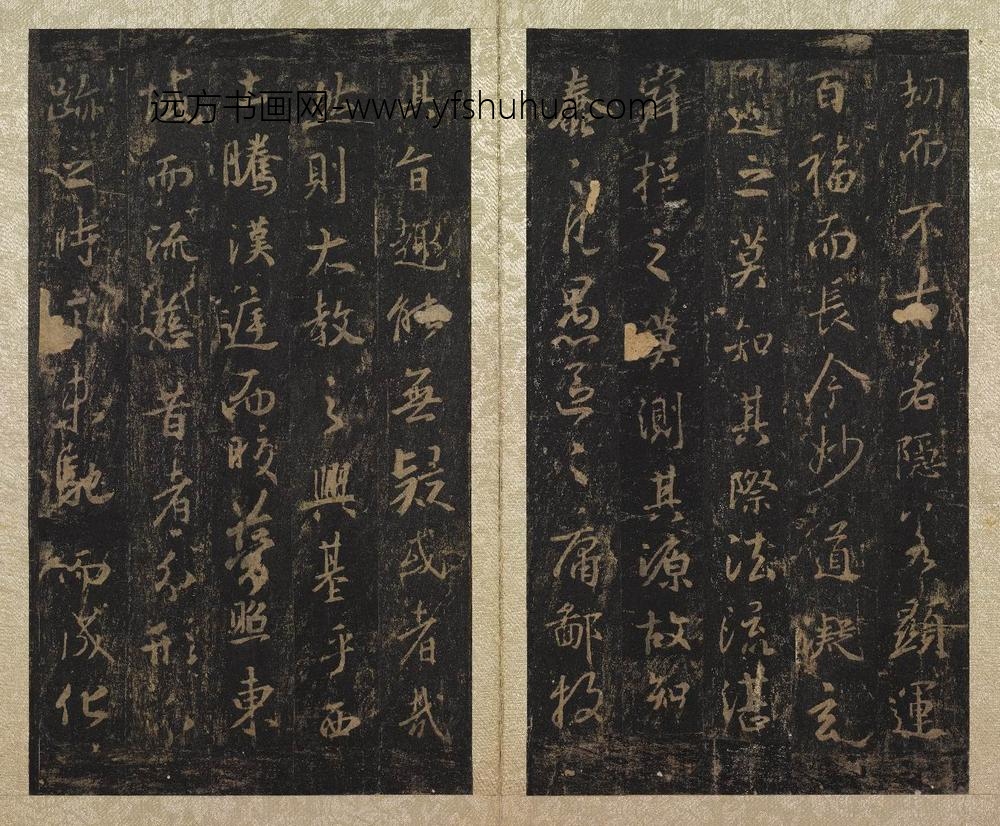 劫而不古若隱若顯運
百福而長今妙道凝玄
遵之莫知其際法流湛
寂挹之莫測其源故知
蠢々凡愚區々庸鄙投
其旨趣能無疑或者哉
然則大教之興基乎西
土騰漢庭而皎夢照東
域而流慈昔者分形分
跡之時言未馳而成化
远方书画网-www.yfshuhua.com